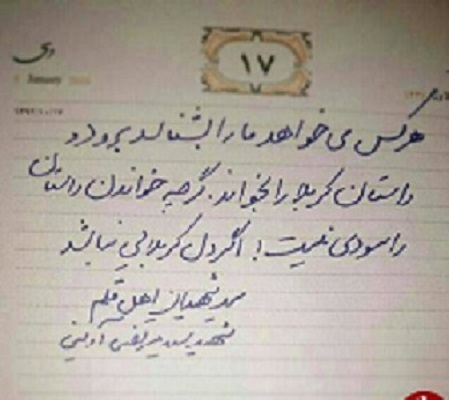 دی
۱۷
January
هرکس می خواهد ما را بشناسد برود و
داستان کربلا را بخواند. گرچه خواندن داستان
را سودی نیست! اگر دل کربلایی نباشد
سید شهیدان اهل قلم
شهید سید مرتضی آوینی